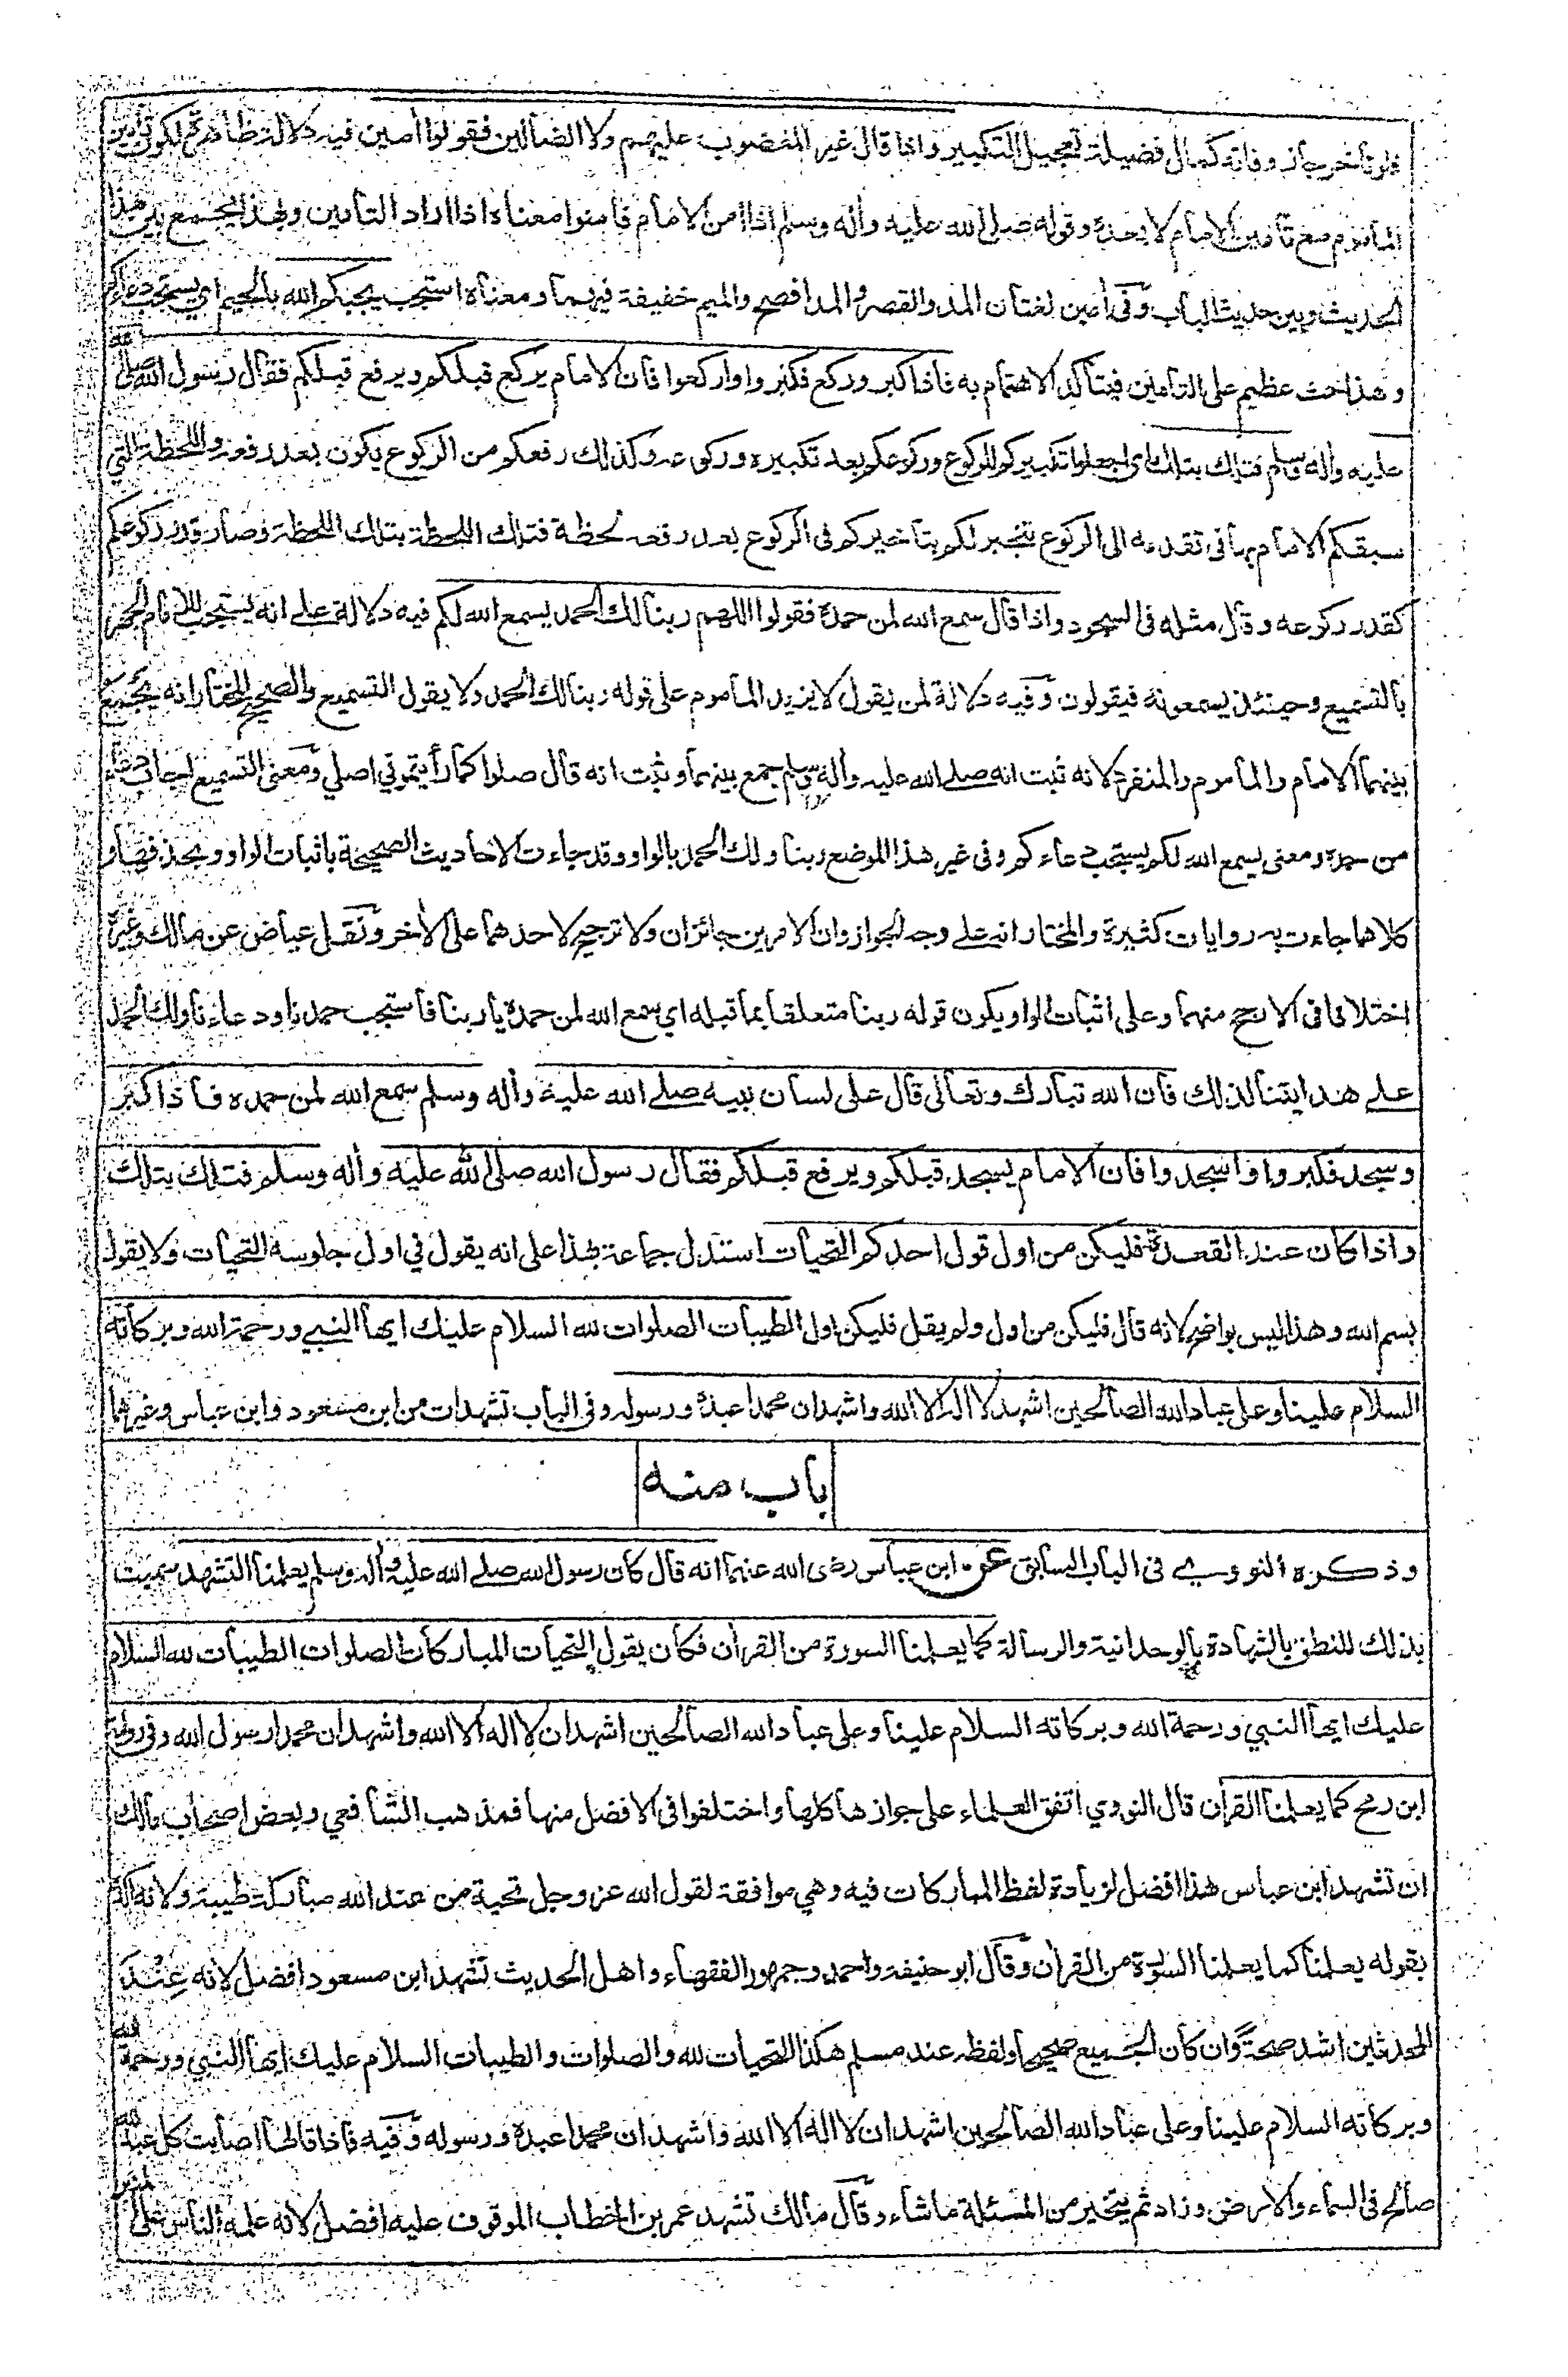 فلو تأخر جاز وفاته كمال فضيلة تعجيل التكبير واذا قال غير المغضوب عليهم ولا الضالين فقولوا أمين فيه دلالة ظاهرة لكون تأمين
المأموم مع تأمين الامام لا بعده وقوله صلى الله عليه وأله وسلم اذا امن الامام فامنوا معناه اذا اراد التأمين وبهذا يجمع بين هذا
الحديث وبين حديث الباب وفى أمين لغتان المد والقصر والمد افصح والميم خفيفة فيهما ومعناه استجب يجبكم الله بالجيم اي يستجب دعاءكم
وهذا حث عظيم على التأمين فيتأكد الاهتمام به فاذا كبر وركع فكبروا واركعوا فان الامام يركع قبلكم ويرفع قبلكم فقال رسول الله صلى الله
عليه وأله وسلم فتلك بتلك اى اجعلوا تكبيركم للركوع وركوعكم بعد تكبيره وركوعه وكذلك رفعكم من الركوع يكون بعد رفعه واللحظة التي
سبقكم الامام بها فى تقدمه الى الركوع تنجبر لكم بتأخيركم فى الركوع بعد رفعه لحظة فتلك اللحظة بتلك اللحظة وصار قدر ركوعكم
كقدر ركوعه وقال مثله فى السجود واذا قال سمع الله لمن حمده فقولوا اللهم ربنا لك الحمد يسمع الله لكم فيه دلالة على انه يستحب للامام الجهر
بالتسميع وحينئذ يسمعونه فيقولون وفيه دلالة لمن يقول لا يزيد المأموم على قوله ربنا لك الحمد ولا يقول التسميع والصحيح المختار انه يجمع
بينهما الامام والمأموم والمنفرد لانه ثبت انه صلى الله عليه وأله وسلم جمع بينهما وثبت انه قال صلوا كما رأيتموني اصلي ومعنى التسميع اجاب دعاء
من حمده ومعنى يسمع الله لكم يستجب دعاءكم وفى غير هذا الموضع ربنا ولك الحمد بالواو وقد جاءت الاحاديث الصحيحة باثبات الواو وبحذفها و
كلاهما جاءت به روايات كثيرة والمختار انه على وجه الجواز وان الامرين جائزان ولا ترجيح لاحدهما على الأخر ونقل عياض عن مالك وغيره
اختلافا فى الارجح منهما وعلى اثبات الواو يكون قوله ربنا متعلقا بما قبله اي سمع الله لمن حمده يا ربنا فاستجب حمدنا ودعاءنا ولك الحمد
على هدايتنا لذلك فان الله تبارك وتعالى قال على لسان نبيه صلى الله عليه وأله وسلم سمع الله لمن حمده فاذا كبر
وسجد فكبروا واسجدوا فان الامام يسجد قبلكم ويرفع قبلكم فقال رسول الله صلى الله عليه وأله وسلم فتلك بتلك
واذا كان عند القعدة فليكن من اول قول احدكم التحيات استدل جماعة بهذا على انه يقول في اول جلوسه التحيات ولا يقول
بسم الله وهذا ليس بواضح لانه قال فليكن من اول ولم يقل فليكن اول الطيبات الصلوات لله السلام عليك ايها النبي ورحمة الله وبركاته
السلام علينا وعلى عباد الله الصالحين اشهد لا اله الا الله واشهد ان محمدا عبده ورسوله وفى الباب تشهدات من ابن مسعود وابن عباس وغيرهما
باب منه
وذكره النووي فى الباب السابق عن ابن عباس رضى الله عنهما انه قال كان رسول الله صلى الله عليه وأله وسلم يعلمنا التشهد سميت
بذلك للنطق بالشهادة بالوحدانية والرسالة كما يعلمنا السورة من القرأن فكان يقول التحيات المباركات الصلوات الطيبات لله السلام
عليك ايها النبي ورحمة الله وبركاته السلام علينا وعلى عباد الله الصالحين اشهد ان لا اله الا الله واشهد ان محمدا رسول الله وفى رواية
ابن رمح كما يعلمنا القرأن قال النووي اتفق العلماء على جوازها كلها واختلفوا فى الافضل منها فمذهب الشافعي وبعض اصحاب مالك
ان تشهد ابن عباس هذا افضل لزيادة لفظ المباركات فيه وهي موافقة لقول الله عز وجل تحية من عند الله مباركة طيبة ولانه اكده
بقوله يعلمنا كما يعلمنا السورة من القرأن وقال ابو حنيفة واحمد وجمهور الفقهاء واهل الحديث تشهد ابن مسعود افضل لانه عِنْدَ
المحدثين اشد صحةً وان كان الجميع صحيحا ولفظه عند مسلم هكذا التحيات لله والصلوات والطيبات السلام عليك ايها النبي ورحمة الله
وبركاته السلام علينا وعلى عباد الله الصالحين اشهد ان لا اله الا الله واشهد ان محمدا عبده ورسوله وفيه فاذا قالها اصابت كل عبد لله
صالح فى السماء والارض وزاد ثم يتخير من المسئلة ما شاء وقال مالك تشهد عمر بن الخطاب الموقوف عليه افضل لانه علمه الناس على المنبر